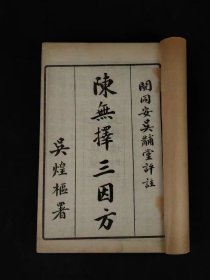 閩同安吳黼堂評註
陳無擇三因方
吳煌樞署